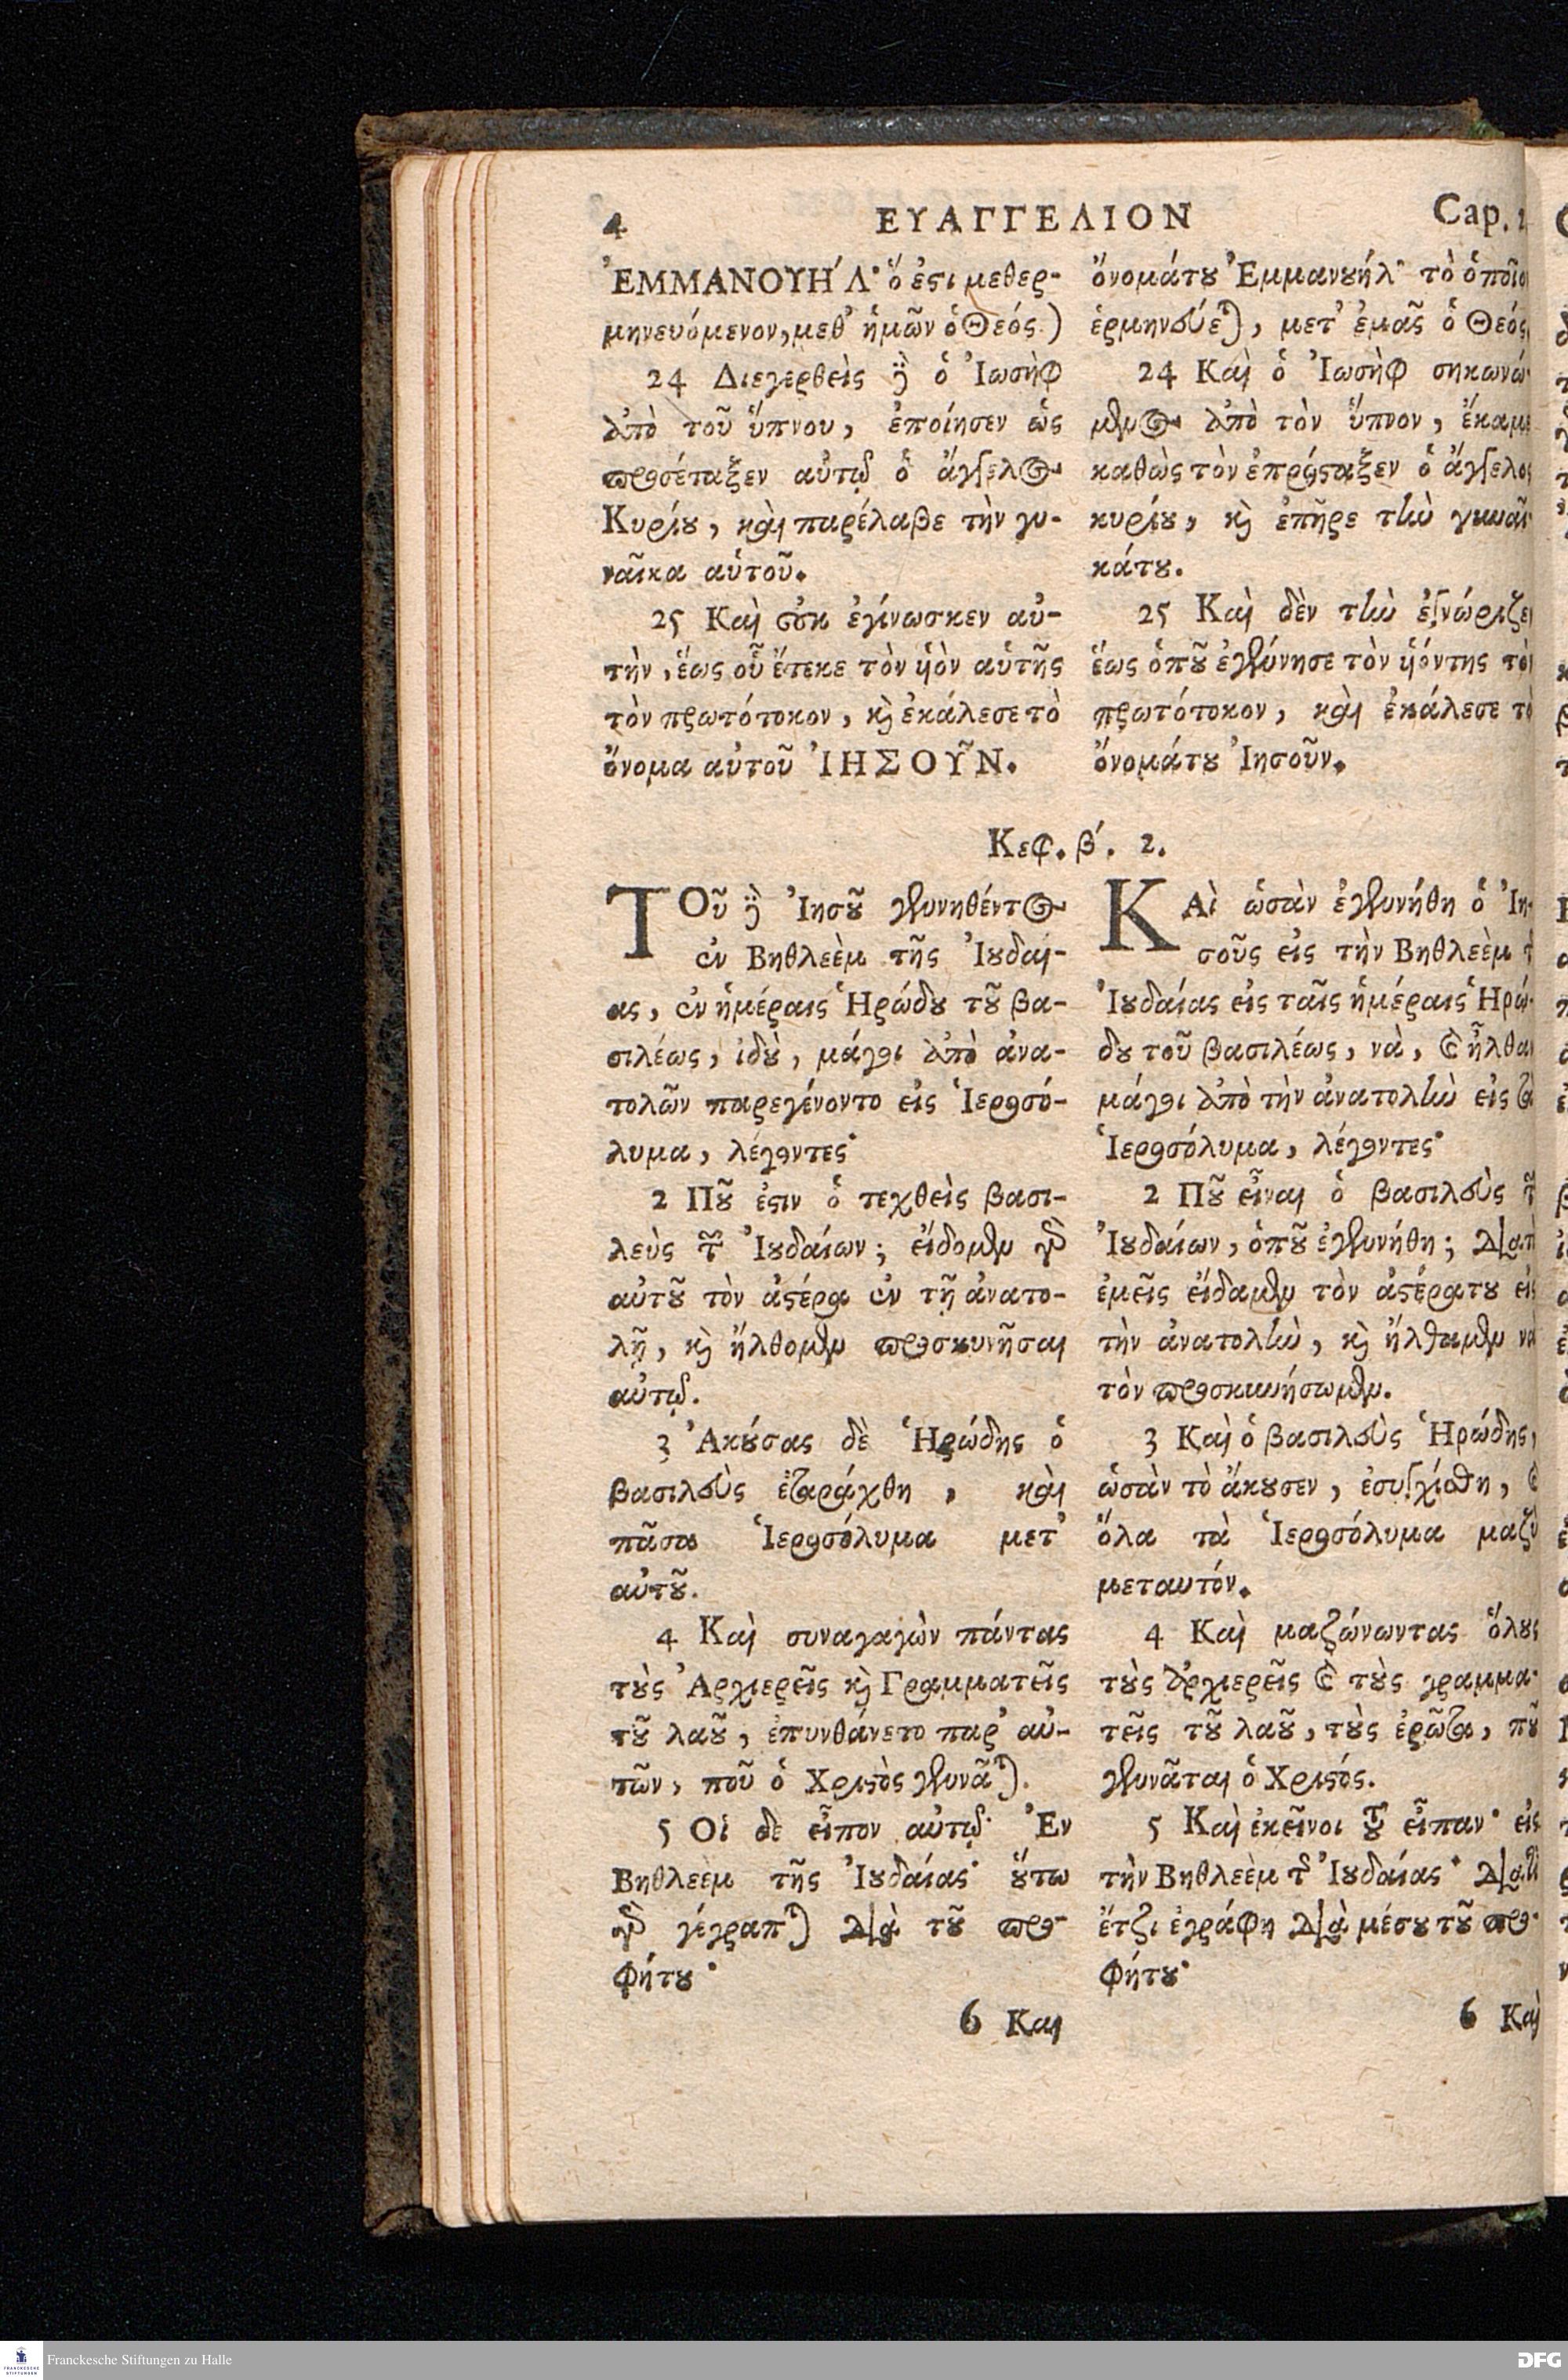 4 ΕΥΑΓΓΕΛΙΟΝ Cap.
ἘΜΜΑΝΟΥΗ´Λ· ὅ ἐϛι μεθερ-
μηνευόμενον, μεθ' ἡμῶν ὁ Θεός.)
24 Διεγερθεὶς δὲ ὁ Ἰωσὴφ
ἀπὸ τοῦ ὕπνου, ἐποίησεν ὡς
προσέταξεν αὐτῷ ὁ ἄγγελος
Κυρίȣ, καὶ παρέλαβε τὴν γυ-
ναῖκα αὑτοῦ.
25 Καὶ οὐκ ἐγίνωσκεν αὐ-
τὴν, ἕως οὗ ἔτεκε τὸν ὑὸν αὑτῆς
τὸν πρωτότοκον, κὶ ἐκάλεσε τὸ
ὄνομα αὐτοῦ ἸΗΣΟΥ͂Ν.
ὄνομάτȣ Ἐμμανȣήλ· τὸ ὁποῖο
ἑρμηνεύεται), μετ' ἐμᾶς ὁ Θεός
24 Καὶ ὁ Ἰωσὴφ σηκωνώ-
μενος ἀπὸ τὸν ὕπνον, ἔκαμε
καθὼς τὸν ἐπρόςταξεν ὁ ἄγγελος
κυρίȣ, κὶ ἐπῆρε τὴν γυναῖ-
κάτȣ.
25 Καὶ δὲν τὴν ἐγνώριζε
ἕως ὁπȣ͂ ἐγέννησε τὸν ὑόντης τὸ
πρωτότοκον, καὶ ἐκάλεσε τὸ
ὄνομάτȣ Ἰησοῦν.
Κεφ. β'. 2.
ΤΟῦ δὲ Ἰησȣ͂ γεννηθέντος
ἐν Βηθλεὲμ τῆς Ἰȣδαί-
ας, ἐν ἡμέραις Ἡρώδȣ τȣ͂ βα-
σιλέως, ἰδȣ̀, μάγοι ἀπὸ ἀνα-
τολῶν παρεγένοντο εἰς Ἱεροσό-
λυμα, λέγοντες·
2 Πȣ͂ ἐϛιν ὁ τεχθεὶς βασι-
λεὺς τῶν Ἰȣδαίων; εἴδομεν γὰρ
αὐτȣ͂ τὸν ἀϛέρα ἐν τῇ ἀνατο-
λῇ, κὶ ἤλθομεν προσκυνῆσαι
αὐτῷ.
3 Ἀκȣ́σας δὲ Ἡρώδης ὁ
βασιλεὺς ἐταράχθη, καὶ
πᾶσα Ἱεροσόλυμα μετ'
αὐτȣ͂.
4 Καὶ συναγαγὼν πάντας
τȣ̀ς Ἀρχιερεῖς κὶ Γραμματεῖς
τȣ͂ λαȣ͂, ἐπυνθάνετο παρ' αὐ-
τῶν, ποῦ ὁ Χριϛὸς γεννᾶται.
5 Οἱ δε εἶπον αὐτῷ· Ἐν
Βηθλεὲμ τῆς Ἰȣδαίας· ȣ̔́τω
γὰρ γέγραπται διὰ τȣ͂ προ-
φήτȣ·
6 Και
ΚΑὶ ὡσὰν ἐγεννήθη ὁ Ἰη-
σοῦς εἰς τὴν Βηθλεὲμ
Ἰȣδαίας εἰς ταῖς ἡμέραις Ἡρώ-
δȣ τοῦ βασιλέως, νὰ, καὶ ἦλθα
μάγοι ἀπὸ τὴν ἀνατολὴν εἰς τὰ
Ἱεροσόλυμα, λέγοντες·
2 Πȣ͂ εἶναι ὁ βασιλεὺς τῶν
Ἰȣδαίων, ὁπȣ͂ ἐγεννήθη; διατὶ
ἐμεῖς εἴδαμεν τὸν ἀϛέρατȣ εἰς
τὴν ἀνατολὴν, κὶ ἤλθαμεν νὰ
τὸν προσκυνήσωμεν.
3 Καὶ ὁ βασιλεὺς Ἡρώδης,
ὡσὰν τὸ ἄκȣσεν, ἐσυγχίσθη, καὶ
ὅλα τὰ Ἱεροσόλυμα μαζὺ
μεταυτόν.
4 Καὶ μαζώνωντας ὅλȣς
τȣ̀ς ἀρχιερεῖς καὶ τȣ̀ς γραμμα-
τεῖς τȣ͂ λαȣ͂, τȣ̀ς ἐρῶτα, πȣ͂
γεννᾶται ὁ Χριϛός.
5 Καὶ ἐκεῖνοι τȣ͂ εἶπαν· εἰς
τὴν Βηθλεὲμ τῆς Ἰȣδαίας· διατὶ
ἔτζι ἐγράφη διὰ μέσȣ τȣ͂ προ-
φήτȣ·
6 Καὶ
Franckesche Stiftungen zu Halle
DFG